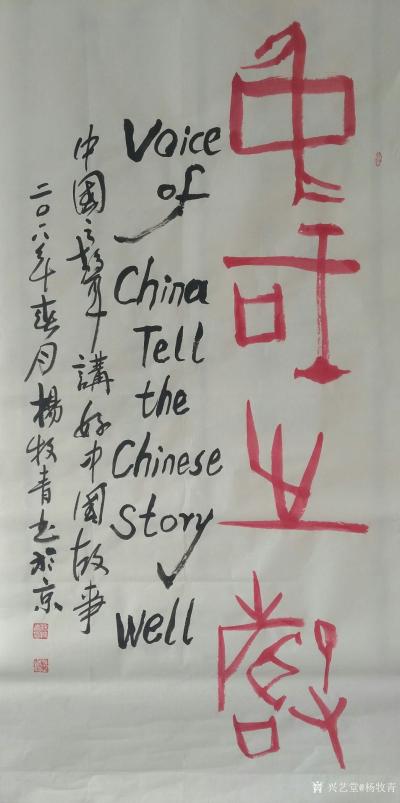 中國之聲
Voice
of
China
Tell
the
Chinese
Story
Well
中國之聲講好中國故事
二〇一八年春月楊牧青书於京
兴艺堂@杨牧青